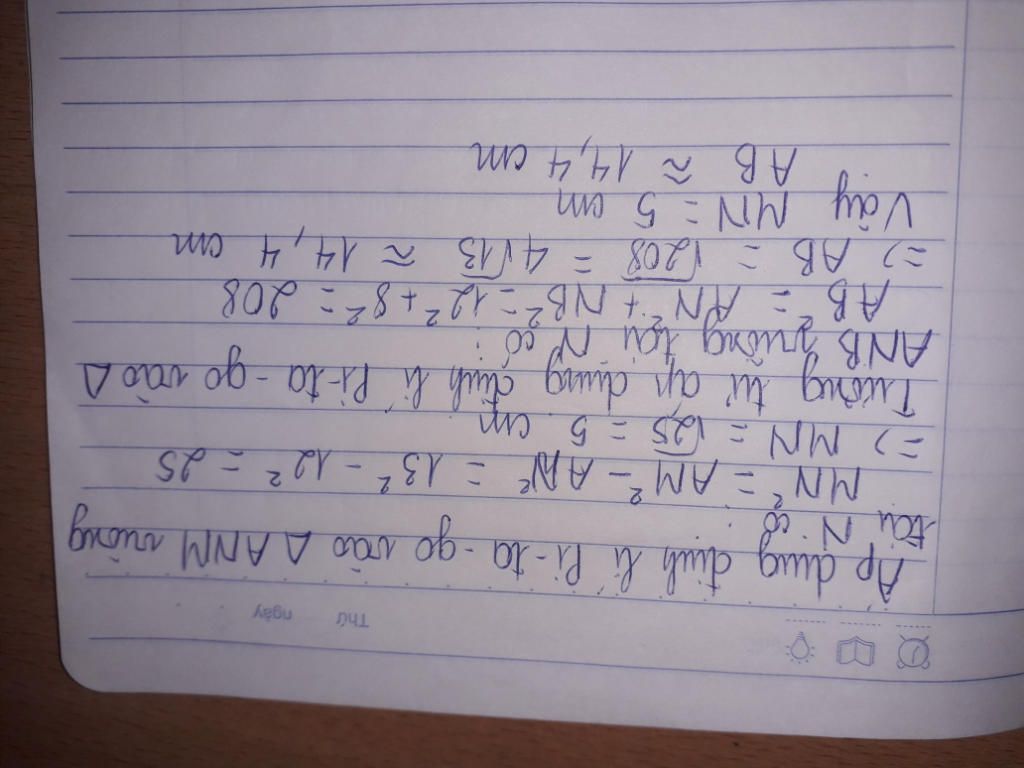 Thứ ngày
Áp dụng định lí Pi-ta-go vào Δ ANM vuông
tại N có:
MN² = AM² - AN² = 13² - 12² = 25
=> MN = √25 = 5 cm
Tương tự áp dụng định lí Pi-ta-go vào Δ
ANB vuông tại N có:
AB² = AN² + NB² = 12² + 8² = 208
=> AB = √208 = 4√13 ≈ 14,4 cm
Vậy MN = 5 cm
AB ≈ 14,4 cm